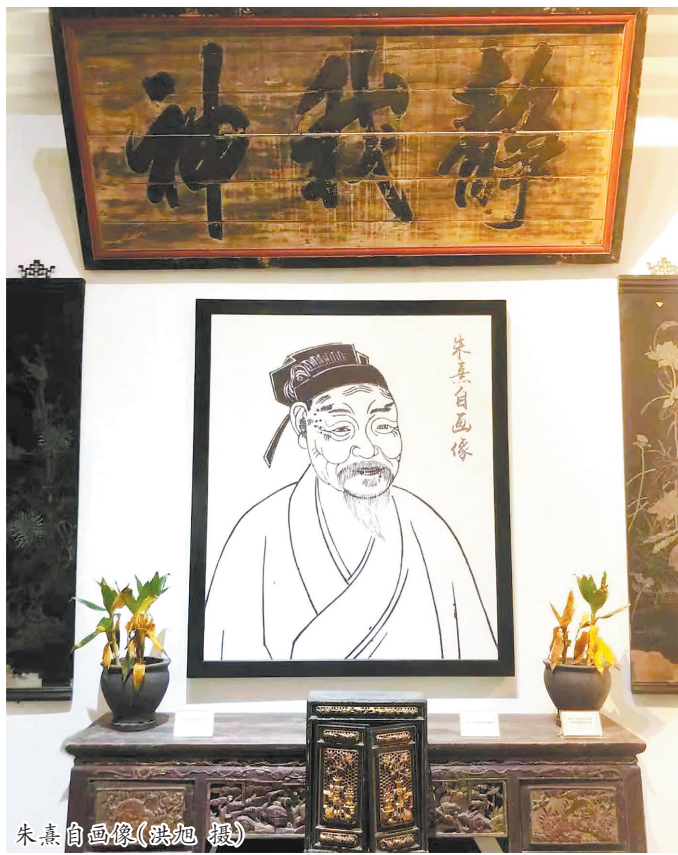 静我神
朱熹自画像
朱熹自画像(洪旭 摄)